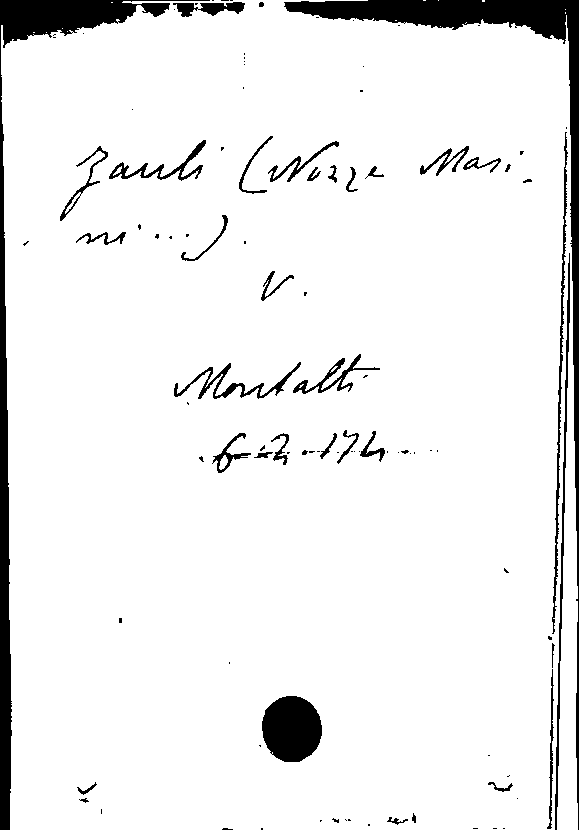 Zauli (Nozze Masi-
ni...).
V.
Montalti
6-2-174